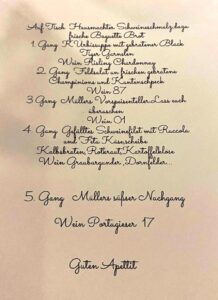 Auf Tisch Hausmachter Schweineschmalz,dazu
frische Baguette Brot
1 Gang K.Urbissuppe mit gebratenen Black
Tiger Garnelen
Wein Risling Chardonney
2. Gang Feldsalat an frischen gebratene
Champinions und Kartenschpeck
Wein 87
3 Gang Müllers Vorspeisenteller.Lass euch
überaschen
Wein 01
4. Gang Gefülltes Schweinefilet mit Ruccola
und Feta Käsescheibe
Kalbsbraten,Rotkraut,Kartoffelklose
Wein Grauburgunder, Dornfelder...
5. Gang Müllers süßer Nachgang
Wein Portugieser 17
Guten Apettit